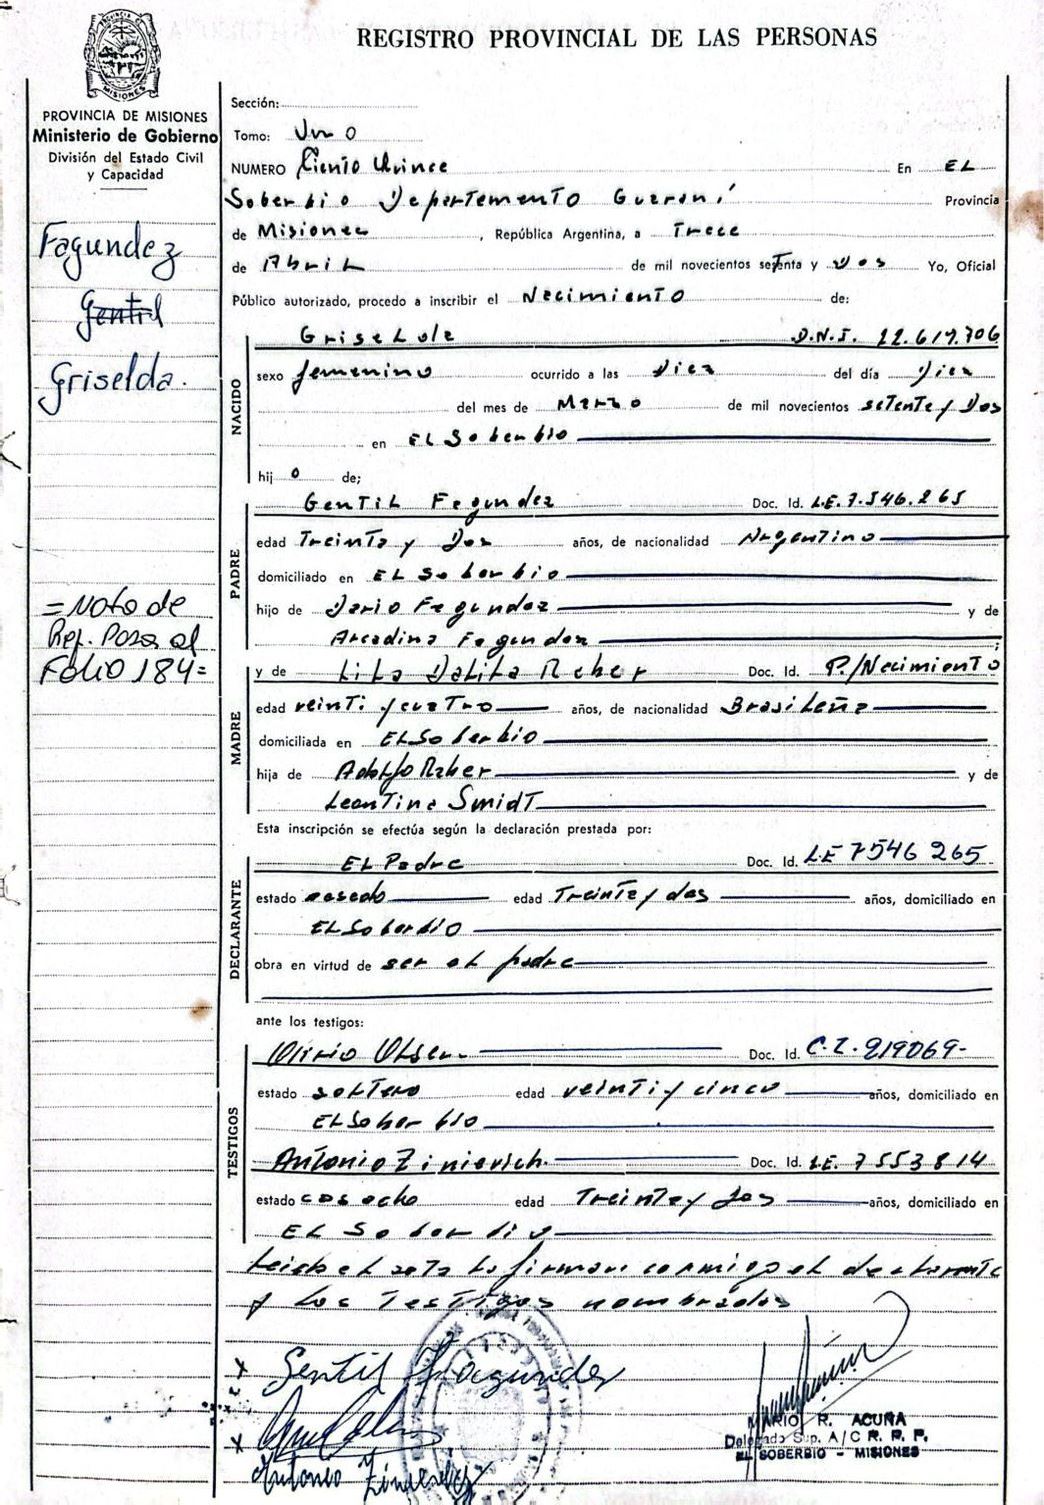 REGISTRO PROVINCIAL DE LAS PERSONAS
PROVINCIA DE MISIONES
Ministerio de Gobierno
División del Estado Civil
y Capacidad
Fagundez
Gentil
Griselda.
=Nota de
Ref. Pasa al
Folio 184=
Sección:
Tomo: Uno
NUMERO Ciento Quince En EL
Soberbio Departamento Guaraní Provincia
de Misiones, República Argentina, a Trece
de Abril de mil novecientos setenta y Dos Yo, Oficial
Público autorizado, procedo a inscribir el Nacimiento de:
NACIDO
Griselda D.N.I. 22.617.706
sexo femenino ocurrido a las Diez del día Diez
del mes de Marzo de mil novecientos setenta y Dos
en El Soberbio
hij o de;
PADRE
Gentil Fagundez Doc. Id. L.E. 7.546.265
edad Treinta y Dos años, de nacionalidad Argentino
domiciliado en El Soberbio
hijo de Dario Fagundez y de
Arcadina Fagundez ;
MADRE
y de Lila Dalila Raber Doc. Id. P./Nacimiento
edad veinti y cuatro años, de nacionalidad Brasileña
domiciliada en El Soberbio
hija de Adolfo Raber y de
Leontina Smidt
Esta inscripción se efectúa según la declaración prestada por:
DECLARANTE
El Padre Doc. Id. L.E 7546 265
estado casado edad Treinta y dos años, domiciliado en
El Soberbio
obra en virtud de ser el padre
ante los testigos:
TESTIGOS
Olsen Doc. Id. C.I. 219069-
estado soltero edad veinti y cinco años, domiciliado en
El Soberbio
Antonio Zinievich. Doc. Id. L.E. 7553814
estado casado edad Treinta y dos años, domiciliado en
El Soberbio
Leida el acta la firman conmigo el declarante
y los Testigos nombrados
x Gentil Fagundez
x
Antonio
MARIO R. ACUÑA
Delegado Sup. A/C R. P. P.
EL SOBERBIO - MISIONES